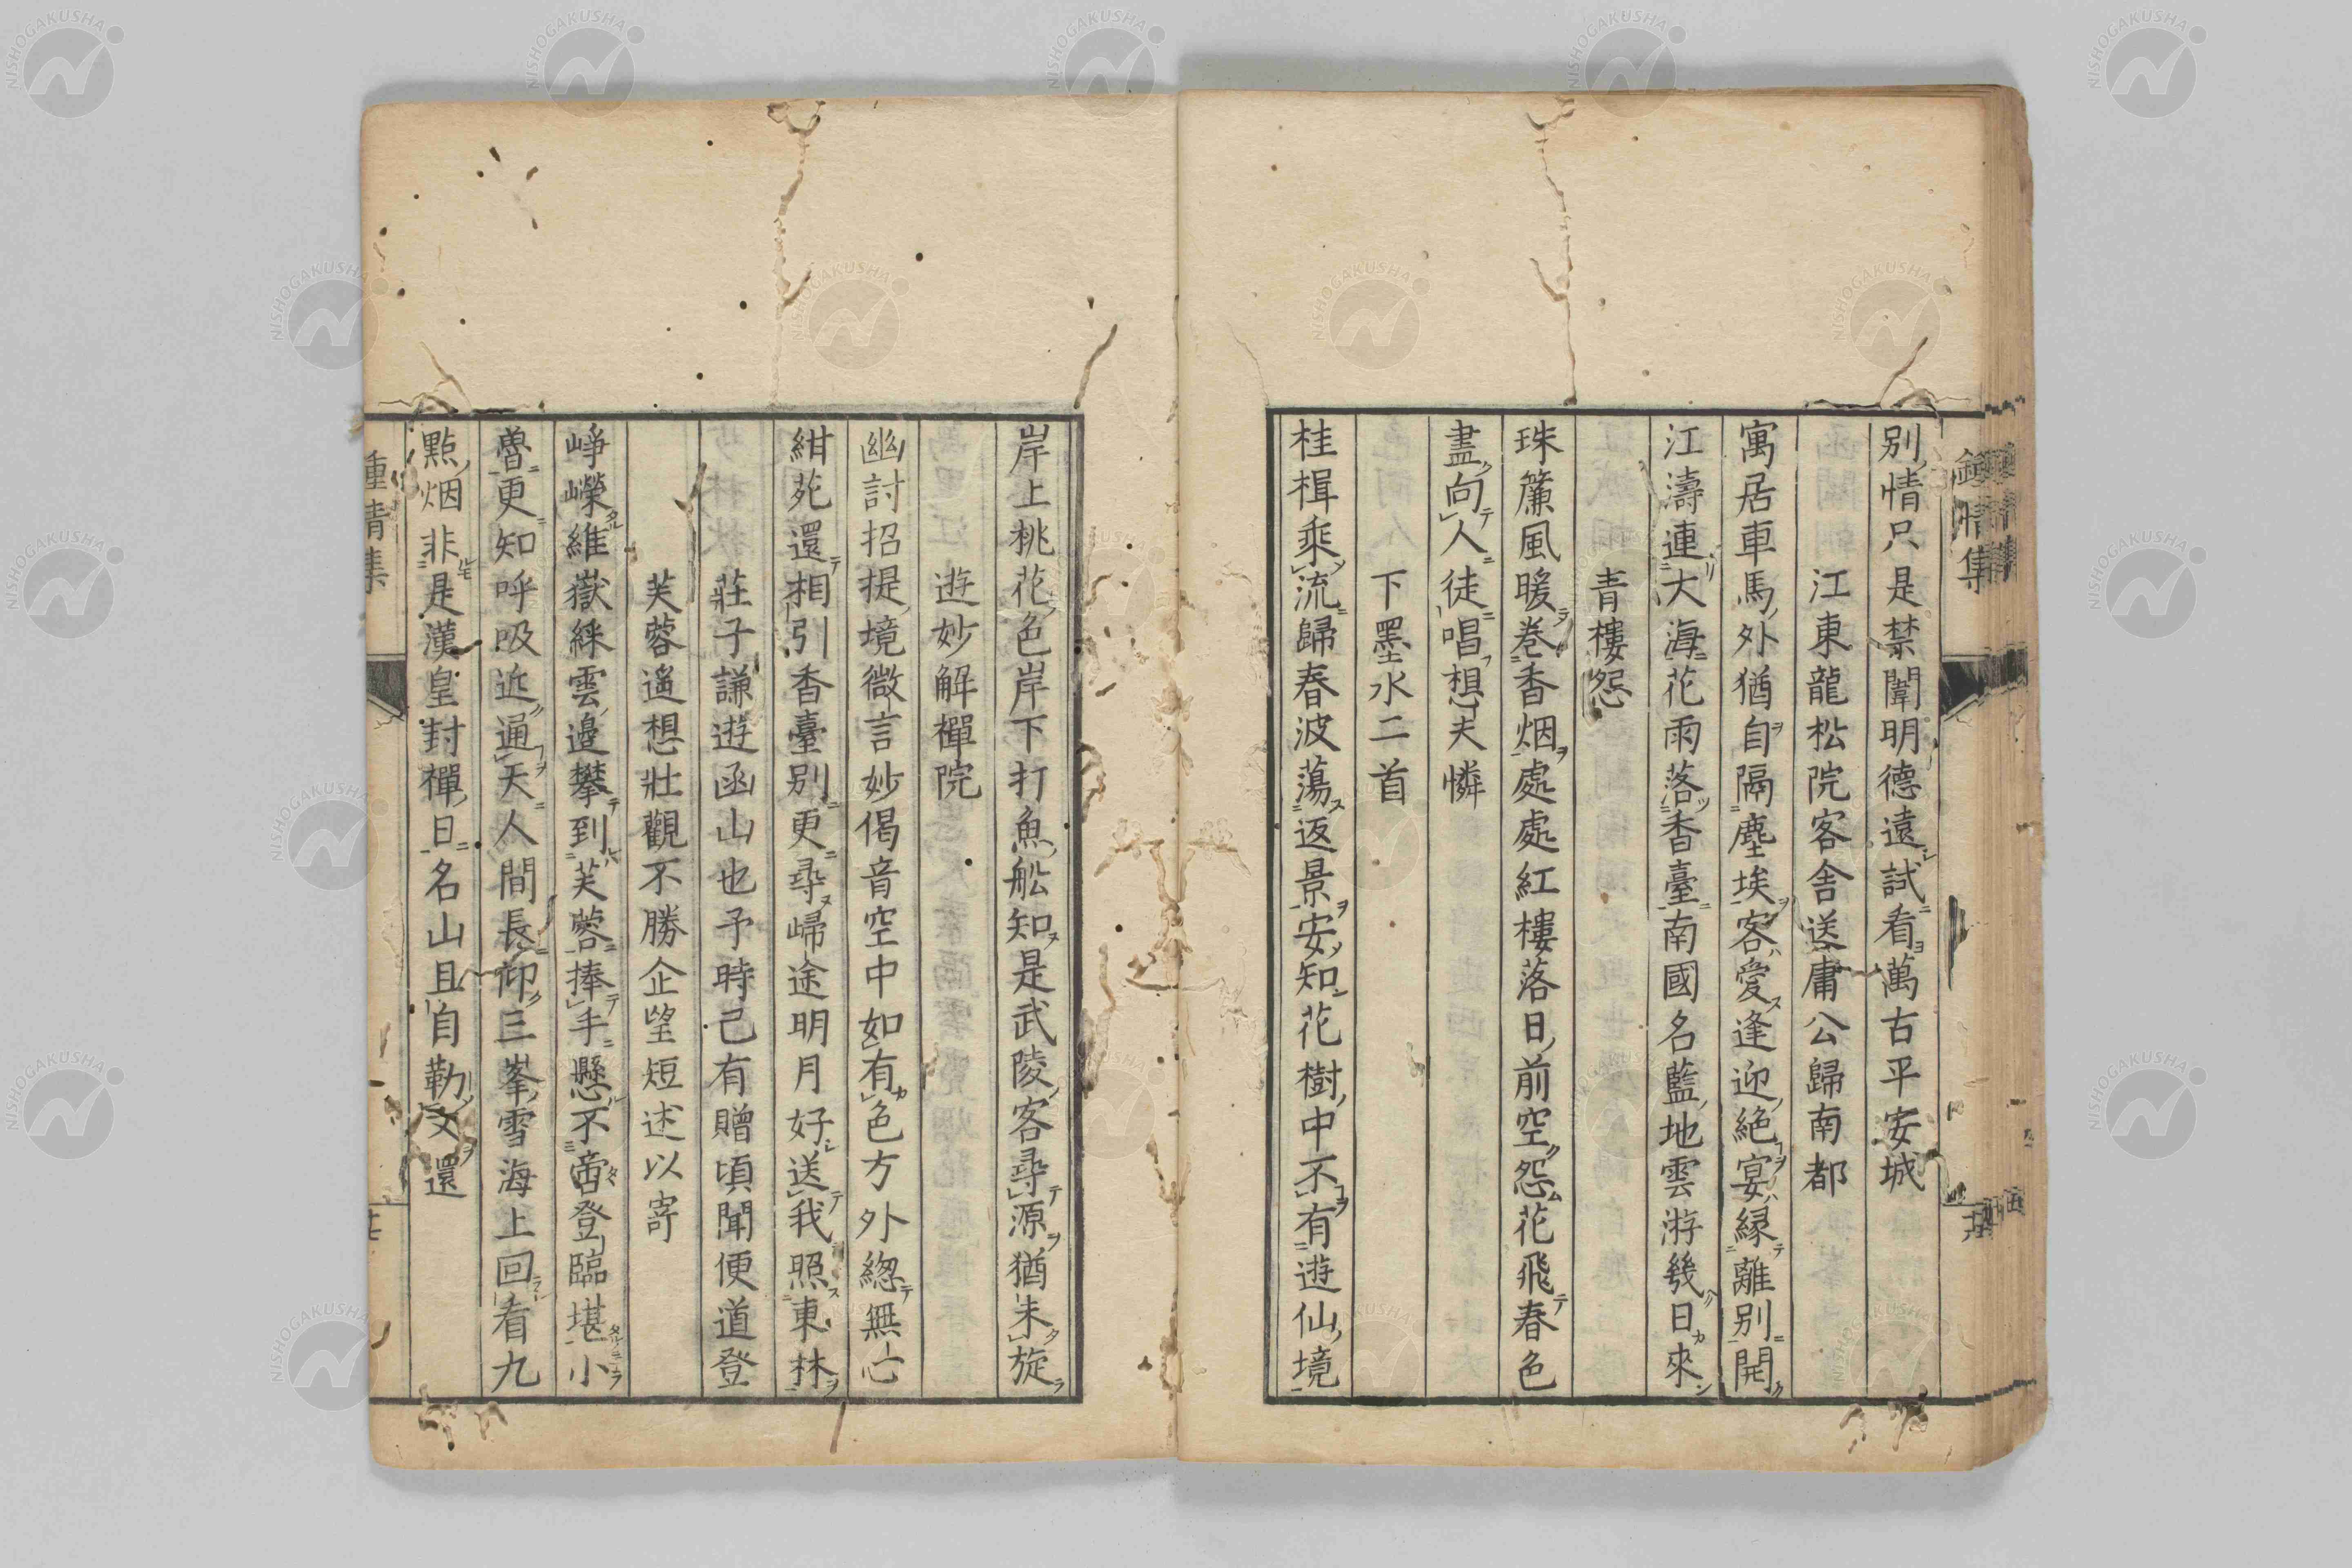 別情只是禁闈明德遠試看萬古平安城
江東龍松院客舍送庸公歸南都
寓居車馬外猶自隔塵埃客愛逢迎絕宴緣離別開
江濤連大海花雨落香臺南國名藍地雲游幾日來
青樓怨
珠簾風暖卷香烟處處紅樓落日前空怨花飛春色
盡向人徒唱想夫憐
下墨水二首
桂楫乘流歸春波蕩返景安知花樹中不有遊仙境
岸上桃花色岸下打魚船知是武陵客尋源猶未旋
遊妙解禪院
幽討招提境微言妙偈音空中如有色方外總無心
紺苑還相引香臺別更尋歸途明月好送我照東林
莊子謙遊函山也予時已有贈頃聞便道登
芙蓉遙想壯觀不勝企望短述以寄
崢嶸維嶽綵雲邊攀到芙蓉捧手懸不啻登臨堪小
魯更知呼吸近通天人間長仰三峯雪海上回看九
點烟非是漢皇封禪日名山且自勒文還
鍾情集